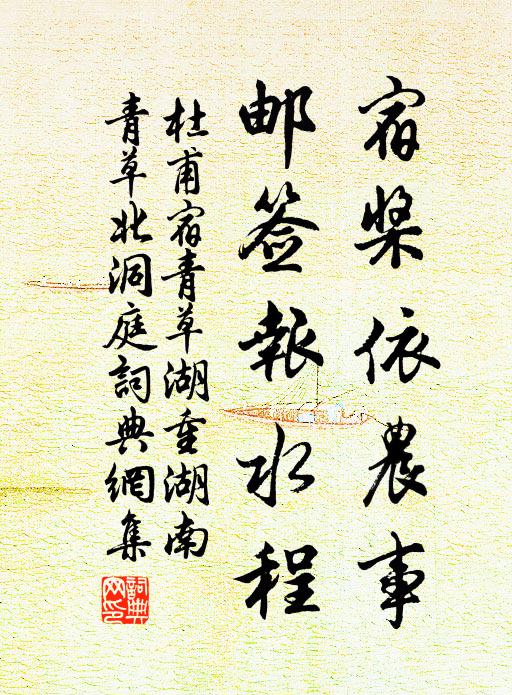 宿桨依農事
邮签報水程
杜甫宿青草湖重湖南
青草北洞庭詞典網集
詞典网印